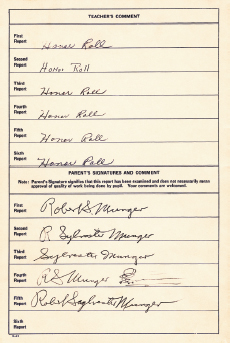 TEACHER'S COMMENT
First Report Honor Roll
Second Report Honor Roll
Third Report Honor Roll
Fourth Report Honor Roll
Fifth Report Honor Roll
Sixth Report Honor Roll
PARENT'S SIGNATURES AND COMMENT
Note: Parent's Signature signifies that this report has been examined and does not necessarily mean
approval of quality of work being done by pupil. Your comments are welcomed.
First Report Robert S. Munger
Second Report R Sylvester Munger
Third Report Sylvester Munger
Fourth Report R S Munger
Fifth Report Robert Sylvester Munger
Sixth Report